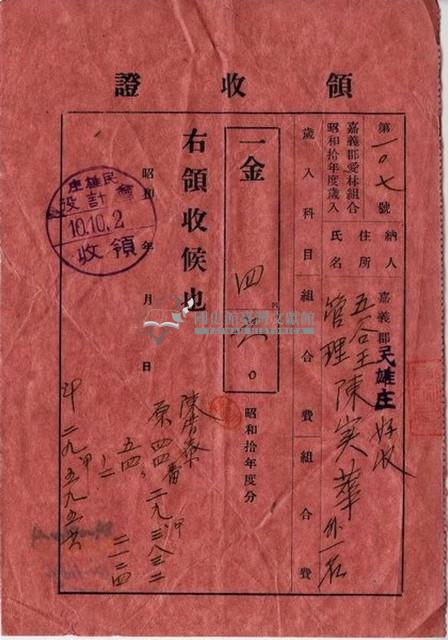 領收證
第一〇七號
嘉義郡愛林組合
昭和拾年度歲入
納人
住所
氏名
嘉義郡民雄庄好收
五谷王
管理陳實華外一名
歲入科目
組合費
組合費
一金
四
昭和拾年度分
右領收候也
昭和 年 月 日
民雄庄
會計役
10.10.2
領收
原四四番
二九、三八三二
五四、
二二四
二九、五九五六
國史館臺灣文獻館